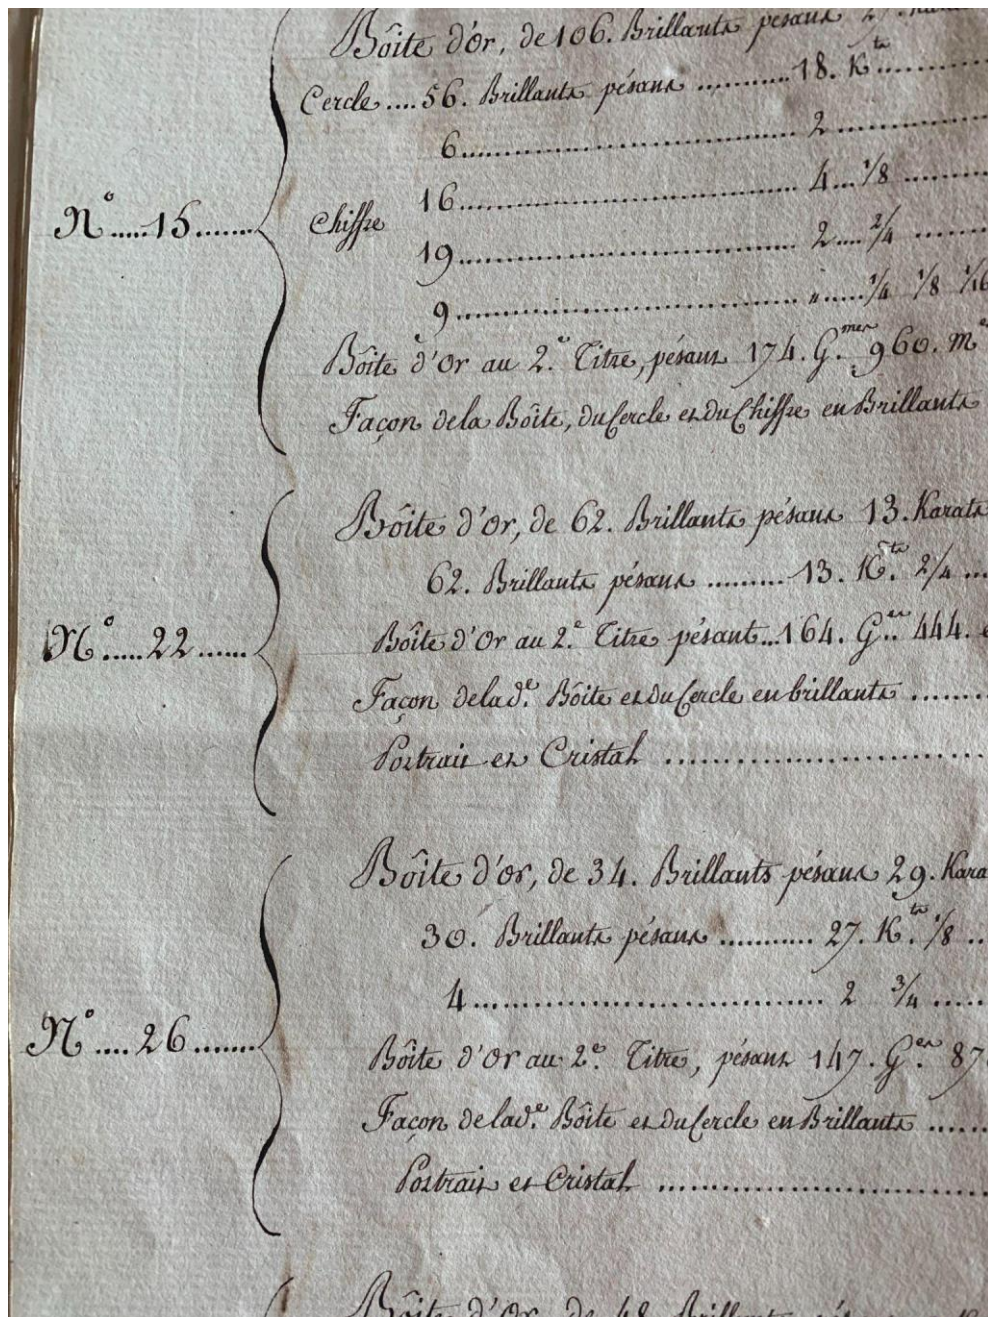 Boîte d'Or, de 106. Brillants pésans 27. Kara
Cercle .... 56. Brillants pésans ........... 18. K.ts ..........
6 ........................................ 2 ..................
16 ........................................ 4 ... 1/8 ..........
Nº ..... 15 ....... Chiffre
19 ........................................ 2 .... 2/4 ..........
9 ........................................ " ..... 1/4 1/8 1/16
Boîte d'Or au 2.e Titre, pésant 174. G.mes 960. m
Façon de la Boîte, du Cercle et du Chiffre en Brillants
Boîte d'Or, de 62. Brillants pésans 13. Karats
62. Brillants pésans ......... 13. K.ts 2/4 ...
Nº ..... 22 ...... Boîte d'Or au 2.e Titre pésant .. 164. G.es 444.
Façon de lad.e Boîte et du Cercle en brillants .......
Portrait et Cristal ..............................
Boîte d'or, de 34. Brillants pésans 29. Kara
30. Brillants pésans ........... 27. K.ts 1/8 ..
4 ................................. 2 3/4 .....
Nº .... 26 ....... Boîte d'Or au 2.e Titre, pésant 147. G.es 87
Façon de lad.e Boîte et du Cercle en Brillants .....
Portrait et Cristal ...............................
Boîte d'Or, de 48. Brillants